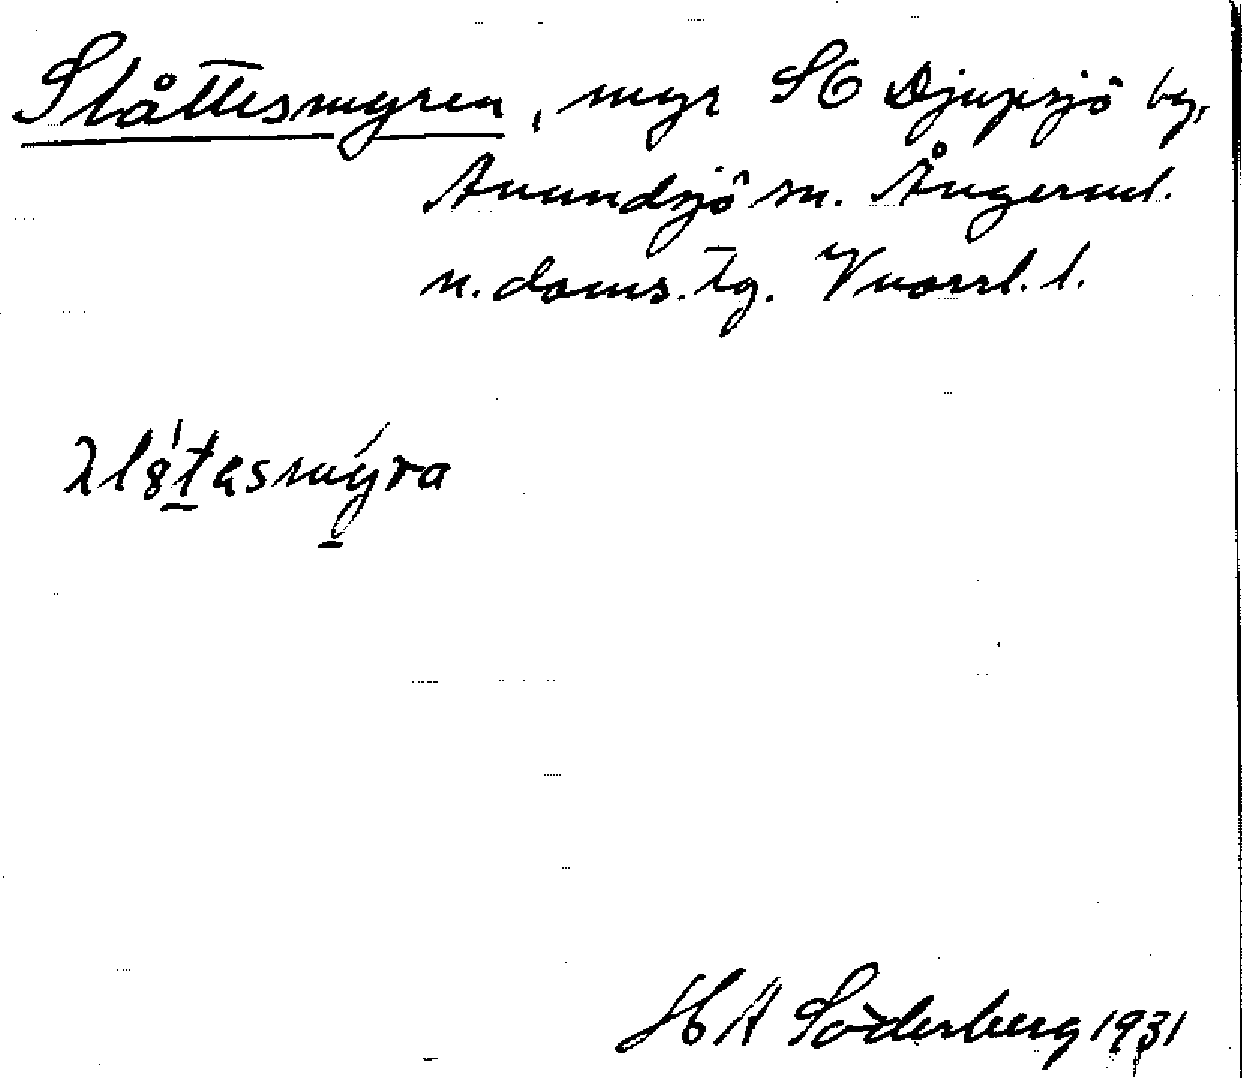 Slåttesmyren, myr SO Djupsjö by,
Anundsjö sn. Ångerml.
n. doms. tg. Vnorrl. l.
λl8́tesmýra
H A Söderberg 1931